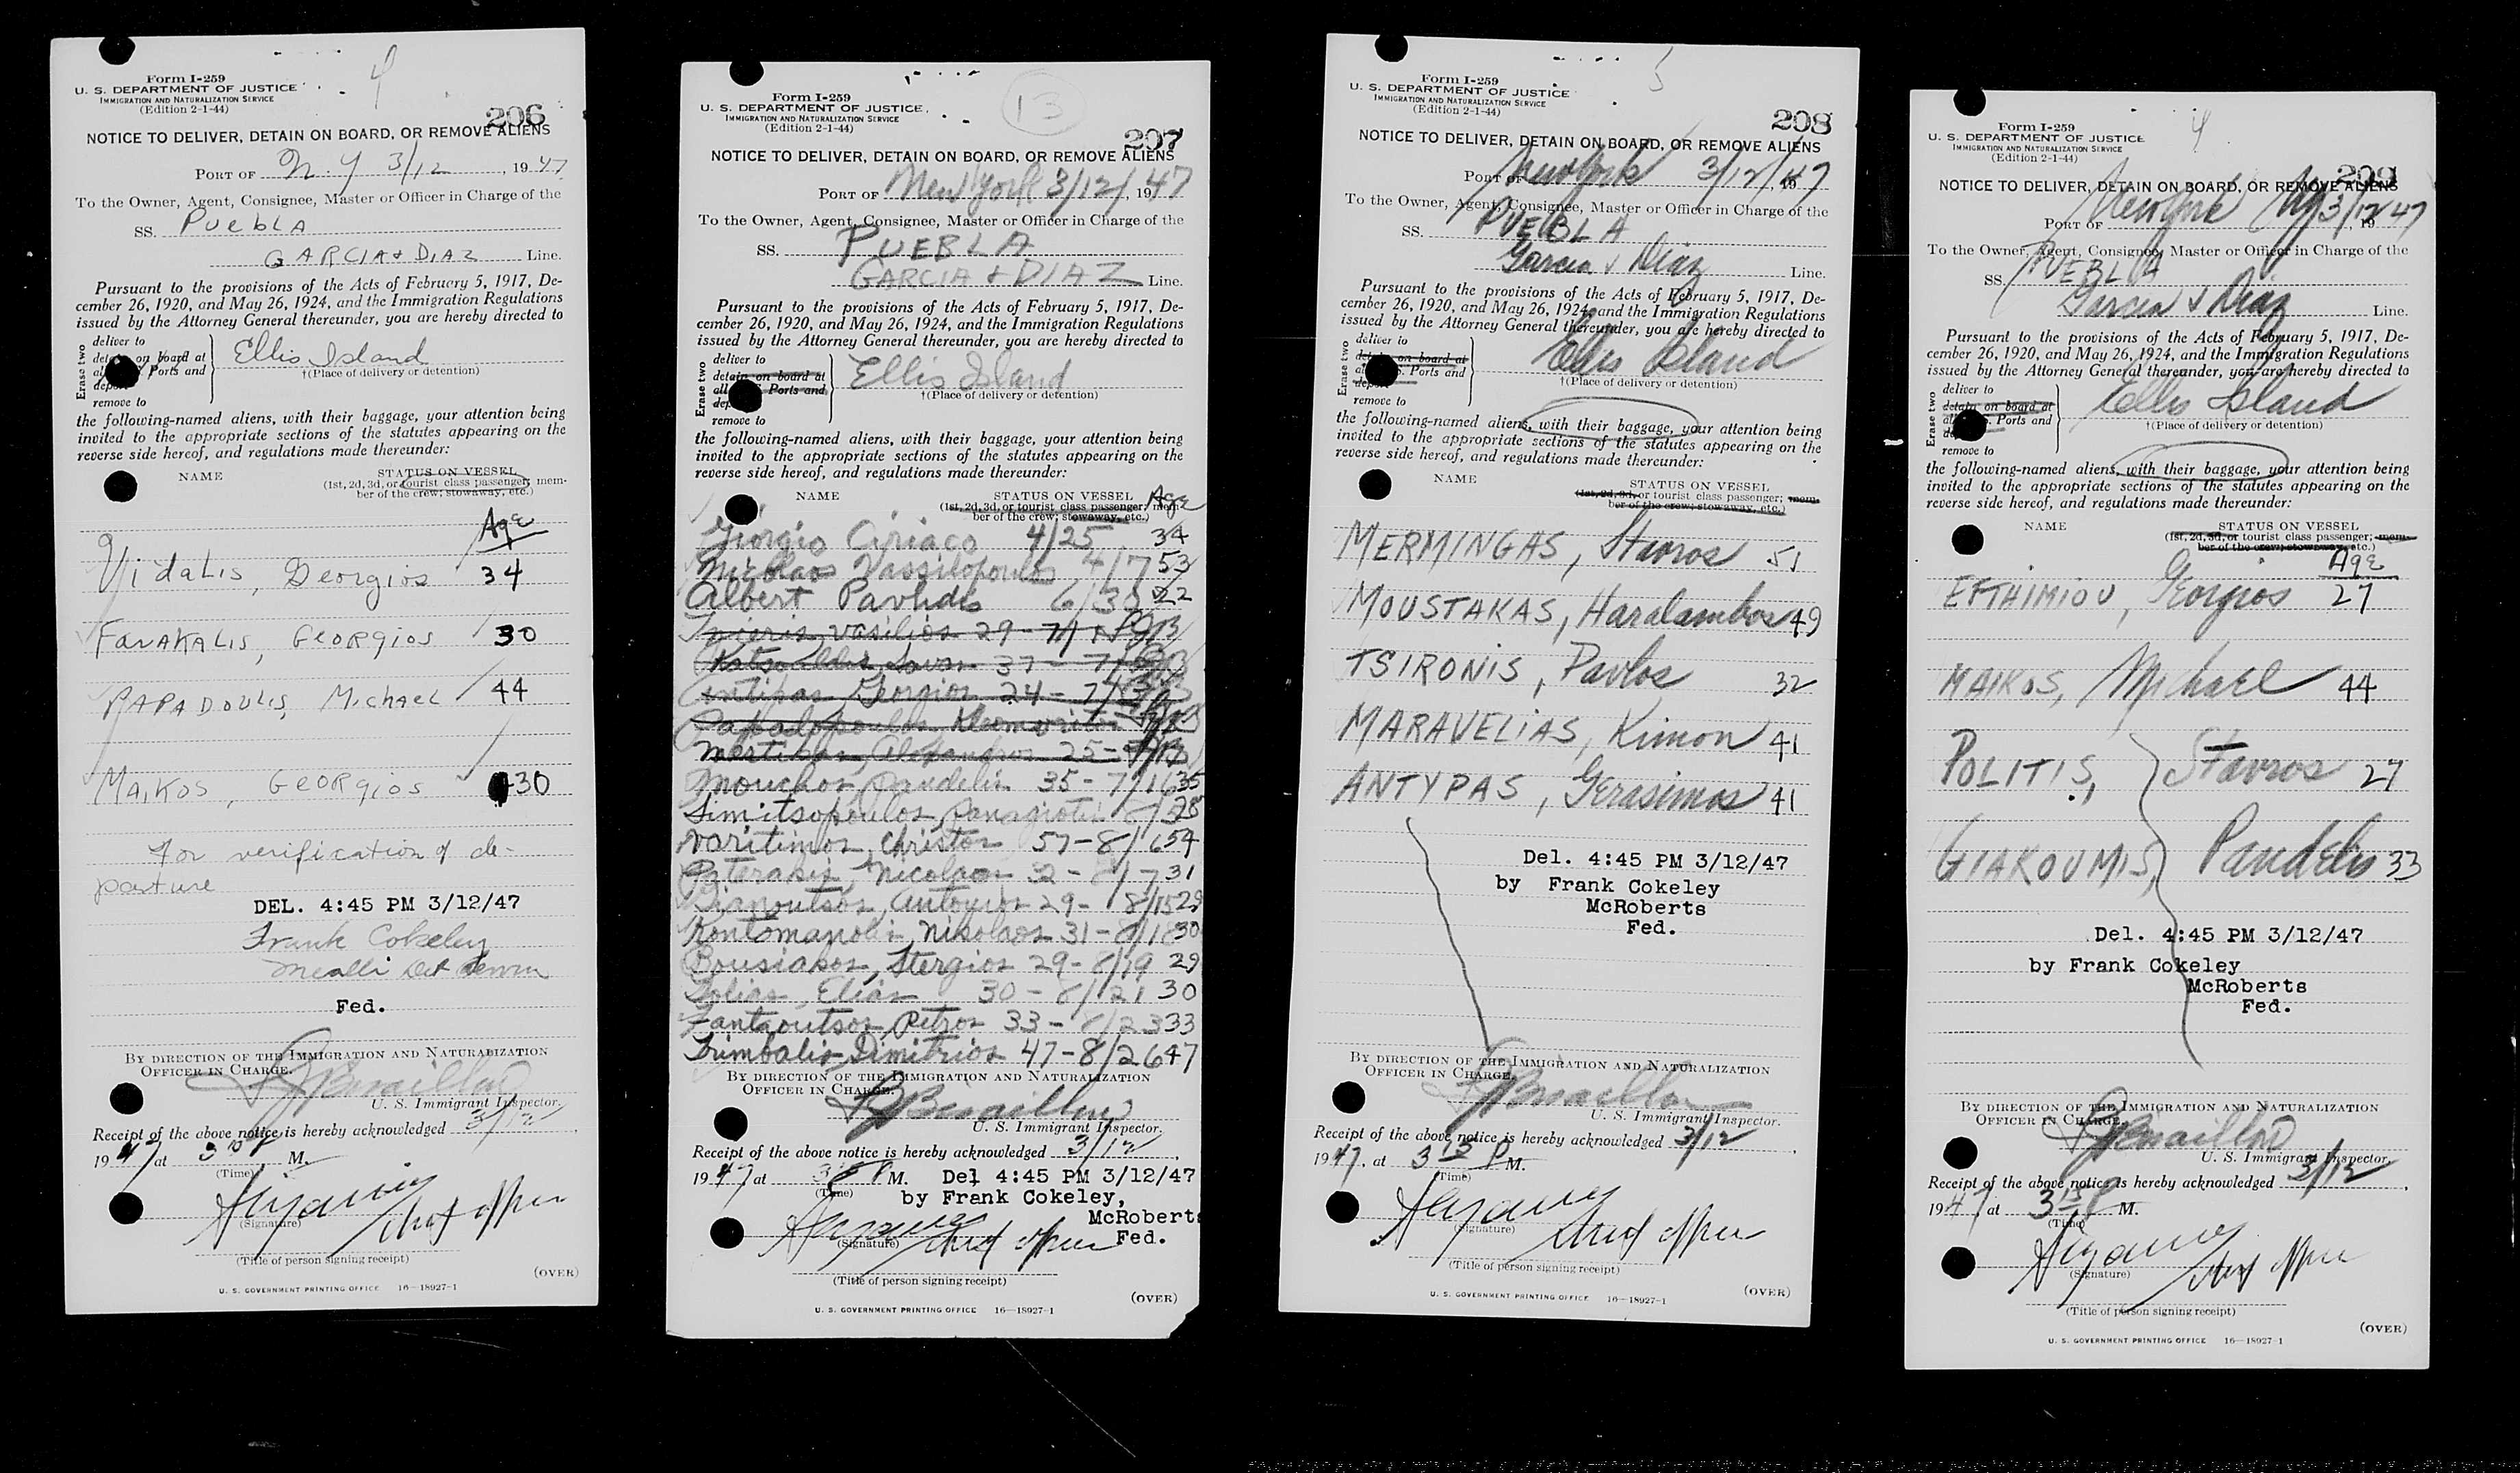 4
Form I-259
U. S. DEPARTMENT OF JUSTICE
IMMIGRATION AND NATURALIZATION SERVICE
(Edition 2-1-44)
206
NOTICE TO DELIVER, DETAIN ON BOARD, OR REMOVE ALIENS
PORT OF N. Y 3/12, 1947
To the Owner, Agent, Consignee, Master or Officer in Charge of the
SS. PUEBLA
GARCIA & DIAZ Line.
Pursuant to the provisions of the Acts of February 5, 1917, De-
cember 26, 1920, and May 26, 1924, and the Immigration Regulations
issued by the Attorney General thereunder, you are hereby directed to
Erase two
deliver to
on board at
Ports and
remove to
Ellis Island
†(Place of delivery or detention)
the following-named aliens, with their baggage, your attention being
invited to the appropriate sections of the statutes appearing on the
reverse side hereof, and regulations made thereunder:
NAME
STATUS ON VESSEL
(1st, 2d, 3d, or tourist class passenger; mem-
ber of the crew; stowaway, etc.)
Age
Vidalis, Georgios 34
FARAKALIS, GEORGIOS 30
PAPADOULIS, MICHAEL 44
MAIKOS, GEORGIOS 30
For verification of de-
parture
DEL. 4:45 PM 3/12/47
Frank Cokeley
Fed.
BY DIRECTION OF THE IMMIGRATION AND NATURALIZATION
OFFICER IN CHARGE.
U. S. Immigrant Inspector.
Receipt of the above notice is hereby acknowledged 3/12
1947 at M.
(Time)
(Signature)
Chief officer
(Title of person signing receipt)
(OVER)
U. S. GOVERNMENT PRINTING OFFICE 16—18927-1
13
Form I-259
U. S. DEPARTMENT OF JUSTICE
IMMIGRATION AND NATURALIZATION SERVICE
(Edition 2-1-44)
207
NOTICE TO DELIVER, DETAIN ON BOARD, OR REMOVE ALIENS
PORT OF New York 3/12/, 1947
To the Owner, Agent, Consignee, Master or Officer in Charge of the
SS. PUEBLA
GARCIA & DIAZ Line.
Pursuant to the provisions of the Acts of February 5, 1917, De-
cember 26, 1920, and May 26, 1924, and the Immigration Regulations
issued by the Attorney General thereunder, you are hereby directed to
Erase two
deliver to
detain on board at
all Ports and
remove to
Ellis Island
†(Place of delivery or detention)
the following-named aliens, with their baggage, your attention being
invited to the appropriate sections of the statutes appearing on the
reverse side hereof, and regulations made thereunder:
NAME
STATUS ON VESSEL
(1st, 2d, 3d, or tourist class passenger; mem-
ber of the crew; stowaway, etc.)
Age
Giorgio Ciriaco 4/25 34
Nicolaos Vassilopoulos 4/7 53
Albert Pavlidis 6/30 22
Vasilios 29
37
Antipas Georgios 24
Papadopoulos
25
Mouchos Pandelis 35 - 7/16 35
Simitsopoulos, Panagiotis 28
Varitimos, Christos 57 - 8/6 54
Paterakis, Nicolaos 32 - 8/7 31
29 - 8/15 29
Kontomanolis, Nikolaos 31 - 8/18 30
Bousiakos, Stergios 29 - 8/19 29
Golias, Elias 30 - 8/21 30
Fantaoutsos, Petros 33 - 8/23 33
Trimbalis, Dimitrios 47 - 8/26 47
BY DIRECTION OF THE IMMIGRATION AND NATURALIZATION
OFFICER IN CHARGE.
U. S. Immigrant Inspector.
Receipt of the above notice is hereby acknowledged 3/12
1947 at M.
(Time)
Del 4:45 PM 3/12/47
by Frank Cokeley,
McRoberts
Fed.
(Signature)
Chief officer
(Title of person signing receipt)
(OVER)
U. S. GOVERNMENT PRINTING OFFICE 16—18927-1
5
Form I-259
U. S. DEPARTMENT OF JUSTICE
IMMIGRATION AND NATURALIZATION SERVICE
(Edition 2-1-44)
208
NOTICE TO DELIVER, DETAIN ON BOARD, OR REMOVE ALIENS
PORT OF New York 3/12/, 1947
To the Owner, Agent, Consignee, Master or Officer in Charge of the
SS. PUEBLA
Garcia & Diaz Line.
Pursuant to the provisions of the Acts of February 5, 1917, De-
cember 26, 1920, and May 26, 1924, and the Immigration Regulations
issued by the Attorney General thereunder, you are hereby directed to
Erase two
deliver to
detain on board at
Ports and
remove to
Ellis Island
†(Place of delivery or detention)
the following-named aliens, with their baggage, your attention being
invited to the appropriate sections of the statutes appearing on the
reverse side hereof, and regulations made thereunder:
NAME
STATUS ON VESSEL
(1st, 2d, 3d, or tourist class passenger; mem-
ber of the crew; stowaway, etc.)
MERMINGAS, Stavros 51
MOUSTAKAS, Haralambos 49
TSIRONIS, Pavlos 32
MARAVELIAS, Kimon 41
ANTYPAS, Gerasimos 41
Del. 4:45 PM 3/12/47
by Frank Cokeley
McRoberts
Fed.
BY DIRECTION OF THE IMMIGRATION AND NATURALIZATION
OFFICER IN CHARGE.
U. S. Immigrant Inspector.
Receipt of the above notice is hereby acknowledged 3/12
1947, at 3 15 P M.
(Time)
(Signature)
Chief officer
(Title of person signing receipt)
(OVER)
U. S. GOVERNMENT PRINTING OFFICE 16—18927-1
4
Form I-259
U. S. DEPARTMENT OF JUSTICE
IMMIGRATION AND NATURALIZATION SERVICE
(Edition 2-1-44)
209
NOTICE TO DELIVER, DETAIN ON BOARD, OR REMOVE ALIENS
PORT OF New York NY 3/12, 1947
To the Owner, Agent, Consignee, Master or Officer in Charge of the
SS. PUEBLA
Garcia & Diaz Line.
Pursuant to the provisions of the Acts of February 5, 1917, De-
cember 26, 1920, and May 26, 1924, and the Immigration Regulations
issued by the Attorney General thereunder, you are hereby directed to
Erase two
deliver to
detain on board at
Ports and
remove to
Ellis Island
†(Place of delivery or detention)
the following-named aliens, with their baggage, your attention being
invited to the appropriate sections of the statutes appearing on the
reverse side hereof, and regulations made thereunder:
NAME
STATUS ON VESSEL
(1st, 2d, 3d, or tourist class passenger; mem-
ber of the crew; stowaway, etc.)
Age
EFTHIMIOU, Georgios 27
MAIKOS, Michael 44
POLITIS, Stavros 27
GIAKOUMIS, Pandelis 33
Del. 4:45 PM 3/12/47
by Frank Cokeley
McRoberts
Fed.
BY DIRECTION OF THE IMMIGRATION AND NATURALIZATION
OFFICER IN CHARGE.
U. S. Immigrant Inspector.
Receipt of the above notice is hereby acknowledged 3/12
1947 at 3 15 P M.
(Time)
(Signature)
Chief officer
(Title of person signing receipt)
(OVER)
U. S. GOVERNMENT PRINTING OFFICE 16—18927-1